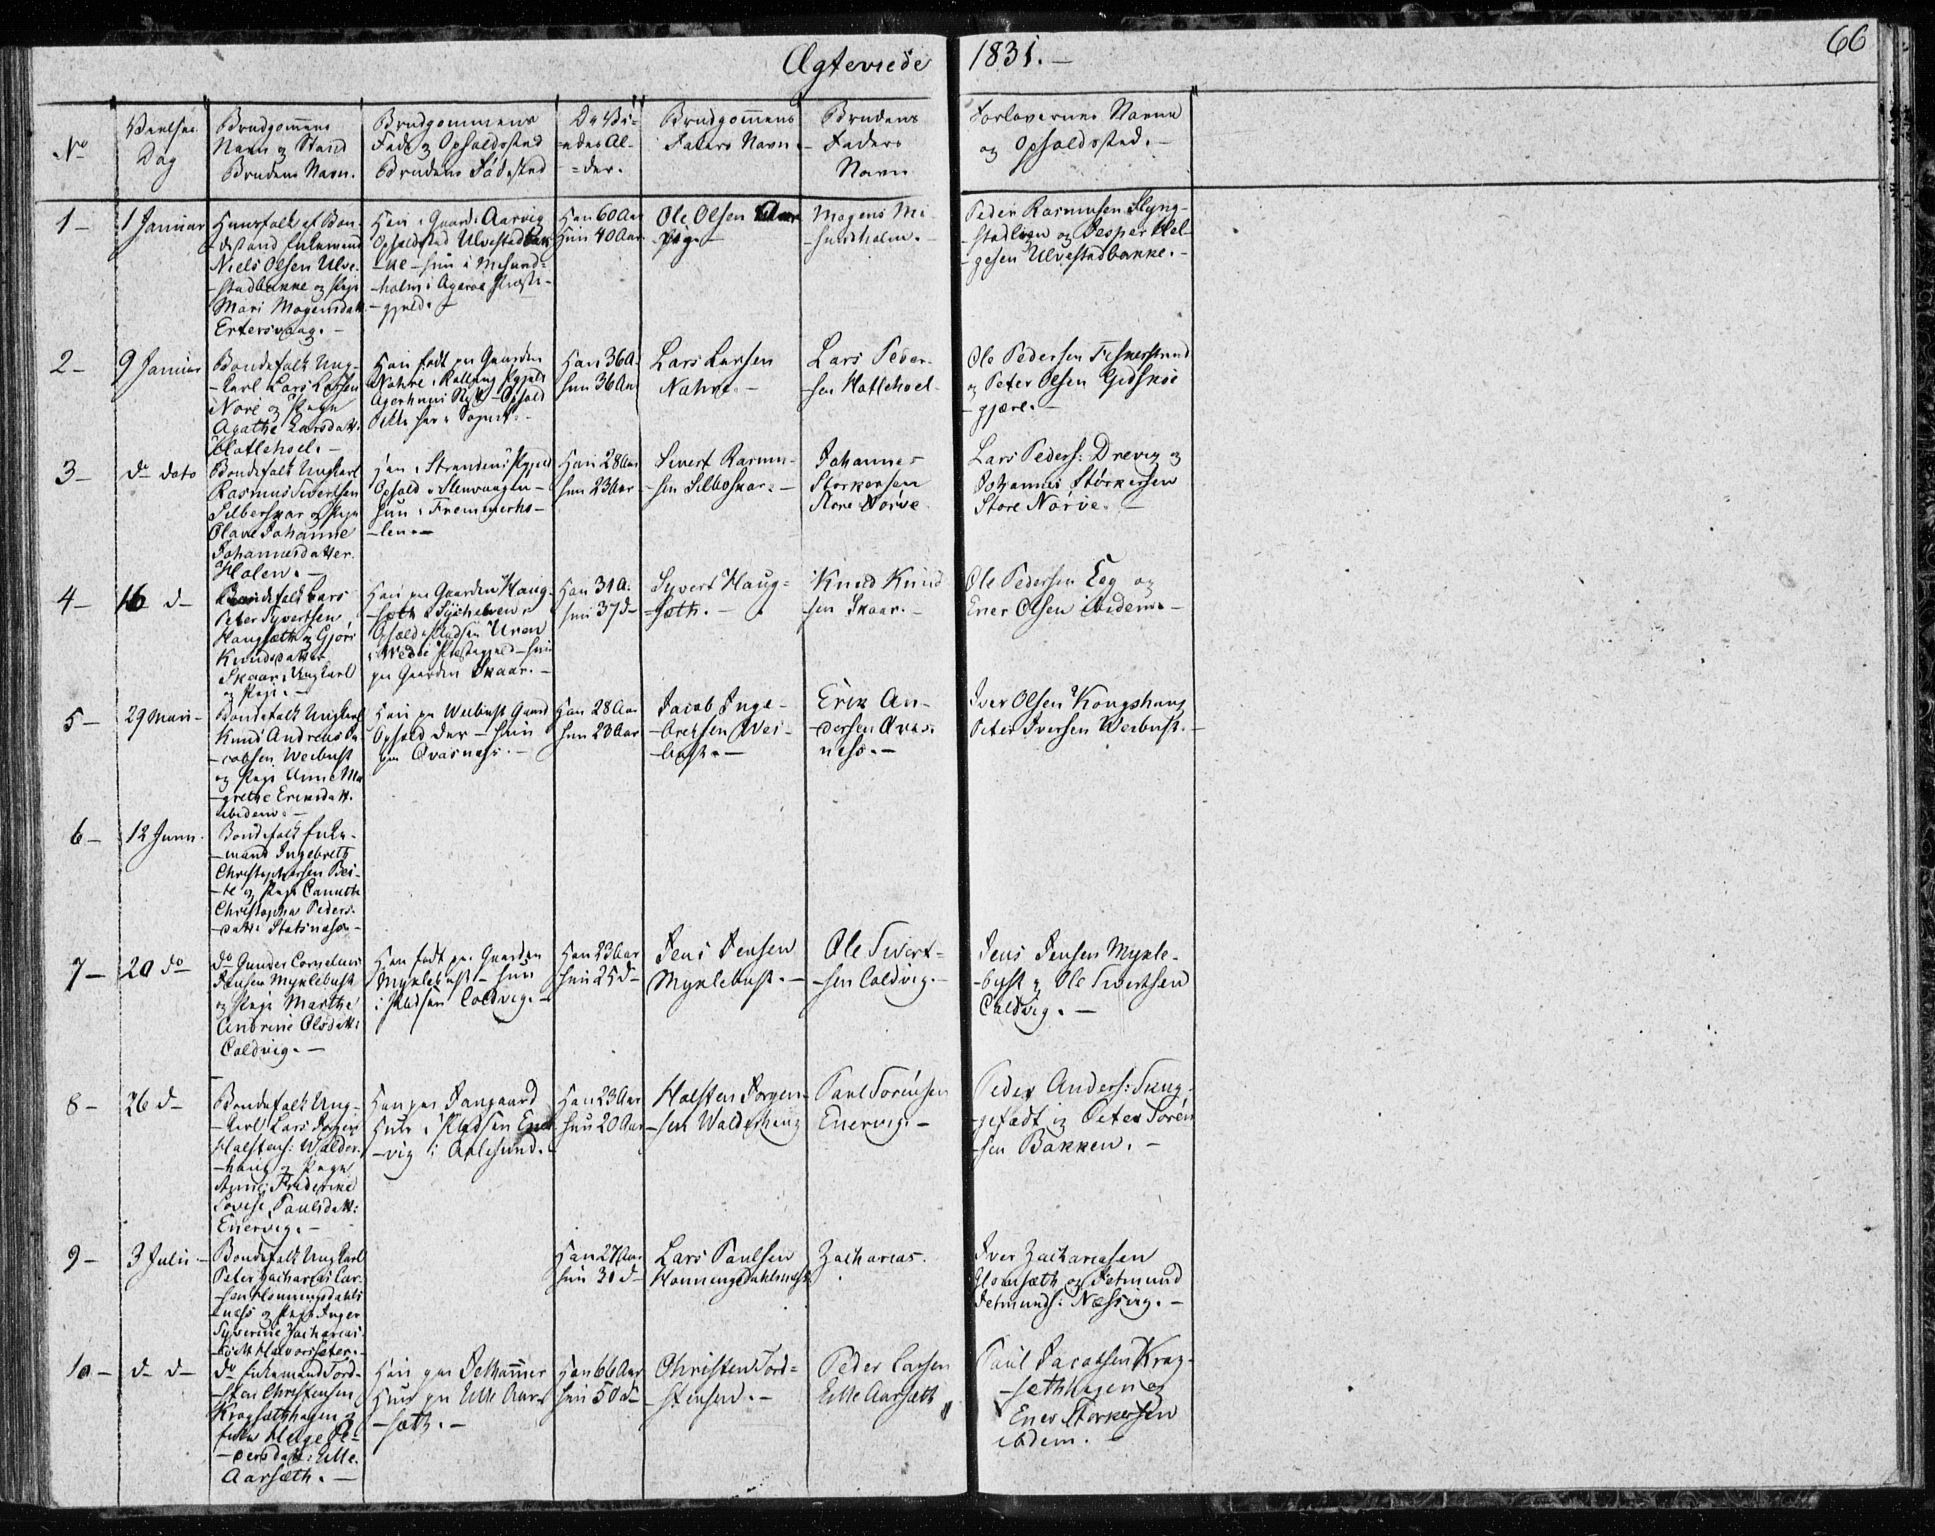 Ægteviede 1831. —
66
No
Vielses
Dag
Brudgomens
Navn og Stand
Brudens Navn.
Brudgommens
Føde og Opholdssted
Brudens Födested
De Vi-
=edes Al-
=der.
Brudgomens
Faders Navn.
Brudens
Faders
Navn
Forlovernes Navne
og Opholdssted. —
1 —
1 Januar
Huusfolk af Bon-
destand Enkemand
Niels Olsen Ulve-
-stadbakke og Pige
Mari Mogensdatt.
Ertersvaag. —
Han i Gaard Aarvig
Opholdsted Ulvestadbak
-ke — hun i Misund=
-holm i Agerøe Præste-
-gjeld. —
Han 60 Aar
Hun 40 Aar
Ole Olsen Aar
-vig. —
Mogens Mi-
-sundholm. —
Peder Rasmusen Flyng-
og Jesper Hel-
-gesen Ulvestadbakke. —
2 —
9 Januar
Bondefolk Ung-
-karl Lars Larsen
Nore og Pige
Agathe Larsdatt.
Hatlehoel. —
Han født paa Gaarden
Nahre i Præstegjeld
Agerhuus Stift — Ophold
her i Sognet. —
Han 36 A.
hun 36 Aar
Lars Larsen
Nahre. —
Lars Peder-
sen Hatlehoel.
Ole Pedersen Fiskerstrand
og Peter Olsen Gidskøe
-gjære. —
3 —
do dato
Bondefolk Ungkarl
Rasmus Sivertsen
Silberskar og Pige
Olave Johanne
Johannesdatter
Holen. —
Han i Strandens Pgjeld
Ophold i Steenvaagen —
hun i Fremmerho-
-len. —
Han 28 Aar
hun 23 Aar
Sivert Rasmu-
sen Silboskar. —
Johannes
Størkersen
Store Nørve
Lars Peders: Drevig og
Johannes Størkersen
Store Nørve. —
4 —
16 d —
Bondefolk Lars
Peter Syvertsen
Haugsæth og Gjøri
Knudsdatter
Skaar, Ungkarl
og Pige. —
Han paa Gaarden Haug-
-sæth i Sychelven
Ophold Pladsen Uren
i Præstegjeld — hun
paa Gaarden Skaar. —
Han 31 A.
hun 37 d —
Syvert Haug=
sæth. —
Knud Knud
sen Skaar. —
Ole Pedersen Eeg og
Ener Olsen ibidem. —
5 —
29 Mari —
Bondefolk Ungkarl
Knud Andreas Ja
-cobsen Weibust
og Pige Anne Ma
-grethe Eriksdatt.
ibidem. —
Han paa Weibust Gaard
Ophold der — hun
paa Qvasness. —
Han 28 Aar
hun 23 Aar
Jacob Inge-
-bretsen Wei-
-bust. —
Erik An-
-dersen Qvas-
ness. —
Iver Olsen Kongshaug
Peter Iversen Weibust. —
6 —
12 Juni.
Bondefolk Enke-
-mand Ingebreth
Christophersen Bei-
-te og Pige Canutte
Christopha Peders-
-datt. Statsnæss —
7 —
20 do
do Gunder Cornelius
Jensen Myklebust
og Pige Marthe
Andrine Olsdatt:
Coldvig. —
Han født paa Gaarden
Myklebust — hun
i Pladsen Coldvig. —
Han 23 Aar
hun 25 d —
Jens Jensen
Myklebust. —
Ole Sivert=
-sen Coldvig. —
Jens Jensen Mykle-
-bust og Ole Sivertsen
Coldvig. —
8 —
26 d —
Bondefolk Ung-
-karl Lars Jørgen
Halstens: Walder-
-haug og Pige
Anne Friderike
Lovise Paulsdatt:
Enervig. —
Han paa Jangaard
Hun i Pladsen Ener
-vig i Aalesund.
Han 23 Aar
hun 20 Aar
Halsten Jørgen-
-sen Walderhaug
Paul Sørensen
Enervig. —
Peder Anders: Tung-
og Peter Søren
-sen Bakken. —
9 —
3 Julii —
Bondefolk Ungkarl
Peter Zacharias Lar-
-sen Honningdahls
næss og Pige Inger
Syverine Zacharias
datt Halvorsseter. —
Han 27 Aar
hun 31 d —
Lars Paulsen
Honningdahlsnæss
Zacharias.
Iver Zachariasen
Flomsæth og Jetmund
Jetmunds: Næssvig. —
10 —
d — d —
do Enkemand Tord-
-sten Christensen
Krogsæthhagen og
Enke Helge Pe-
-dersdatt: Lille
Aarsæth. —
Han paa Jelhammer
Hun paa Lille Aar-
-sæth. —
Han 66 Aar
hun 50 d —
Christen Tord=
-stensen. —
Peder Larsen
Lille Aarsæth
Paul Jacobsen Krog-
-sæthhagen og
Ener Størkersen
ibdem. —